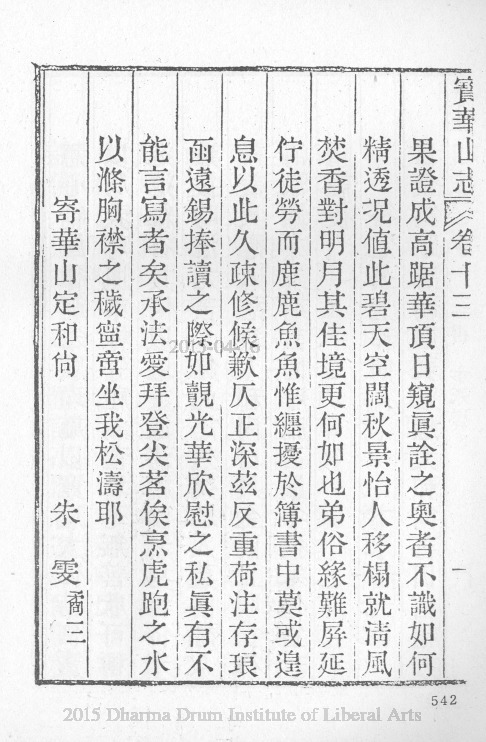 寶華山志 卷十三
果證成高踞華頂日窺眞詮之奧者不識如何
精透况值此碧天空闊秋景怡人移榻就淸風
焚香對明月其佳境更何如也弟俗緣難屏延
佇徒勞而鹿鹿魚魚惟纏擾於簿書中莫或遑
息以此久疎修候歉仄正深茲反重荷注存琅
函遠錫捧讀之際如覿光華欣慰之私眞有不
能言寫者矣承法愛拜登尖茗俟烹虎跑之水
以滌胸襟之穢寧啻坐我松濤耶
寄華山定和尙 朱雯
542
2015 Dharma Drum Institute of Liberal Arts